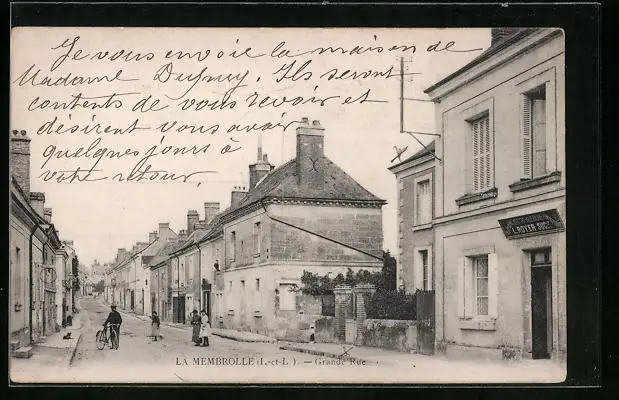 Je vous envoie la maison de
Madame Dupuy. Ils seront
contents de vous revoir et
désirent vous avoir
quelques jours à
votre retour.
L. ROYER SUCC
LA MEMBROLLE (I.-et-L.) — Grande Rue